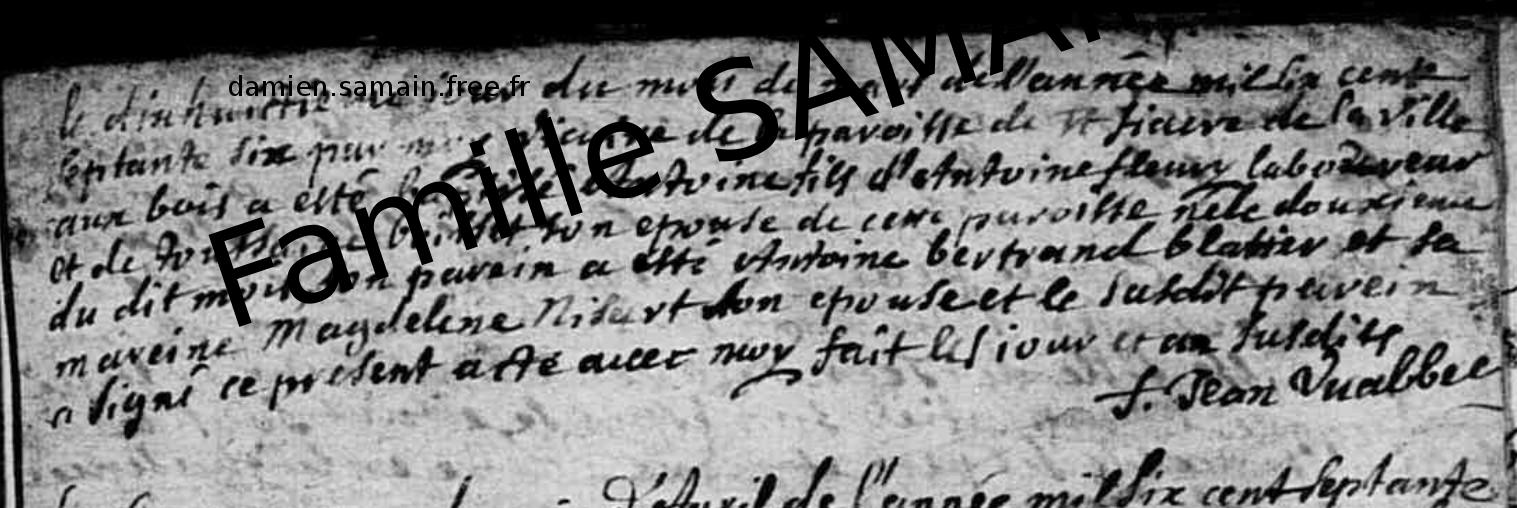 damien.samain.free.fr
Famille SAMAI
le dixhuictie du mois de de l'année mil six cent
septante six par moy vicaire de la paroisse de st fiacre de la ville
aux bois a esté Antoine fils d'Antoine fleury laboureur
et de son epouse de cette paroisse né le douxieme
du dit mois son parein a esté Antoine bertrand blatier et sa
mareine Magdelene Nisart son epouse et le susdit parein
a signé ce present acte avec moy fait les jour et an susdits
f. Jean Vualbbee
D'Avril de l'année mil six cent septante